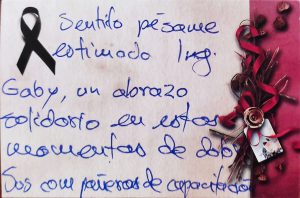 Sentito pésame
estimado Ing.
Gaby, un abrazo
solidario en estos
momentos de dolor
Sus compañeros de capacitación